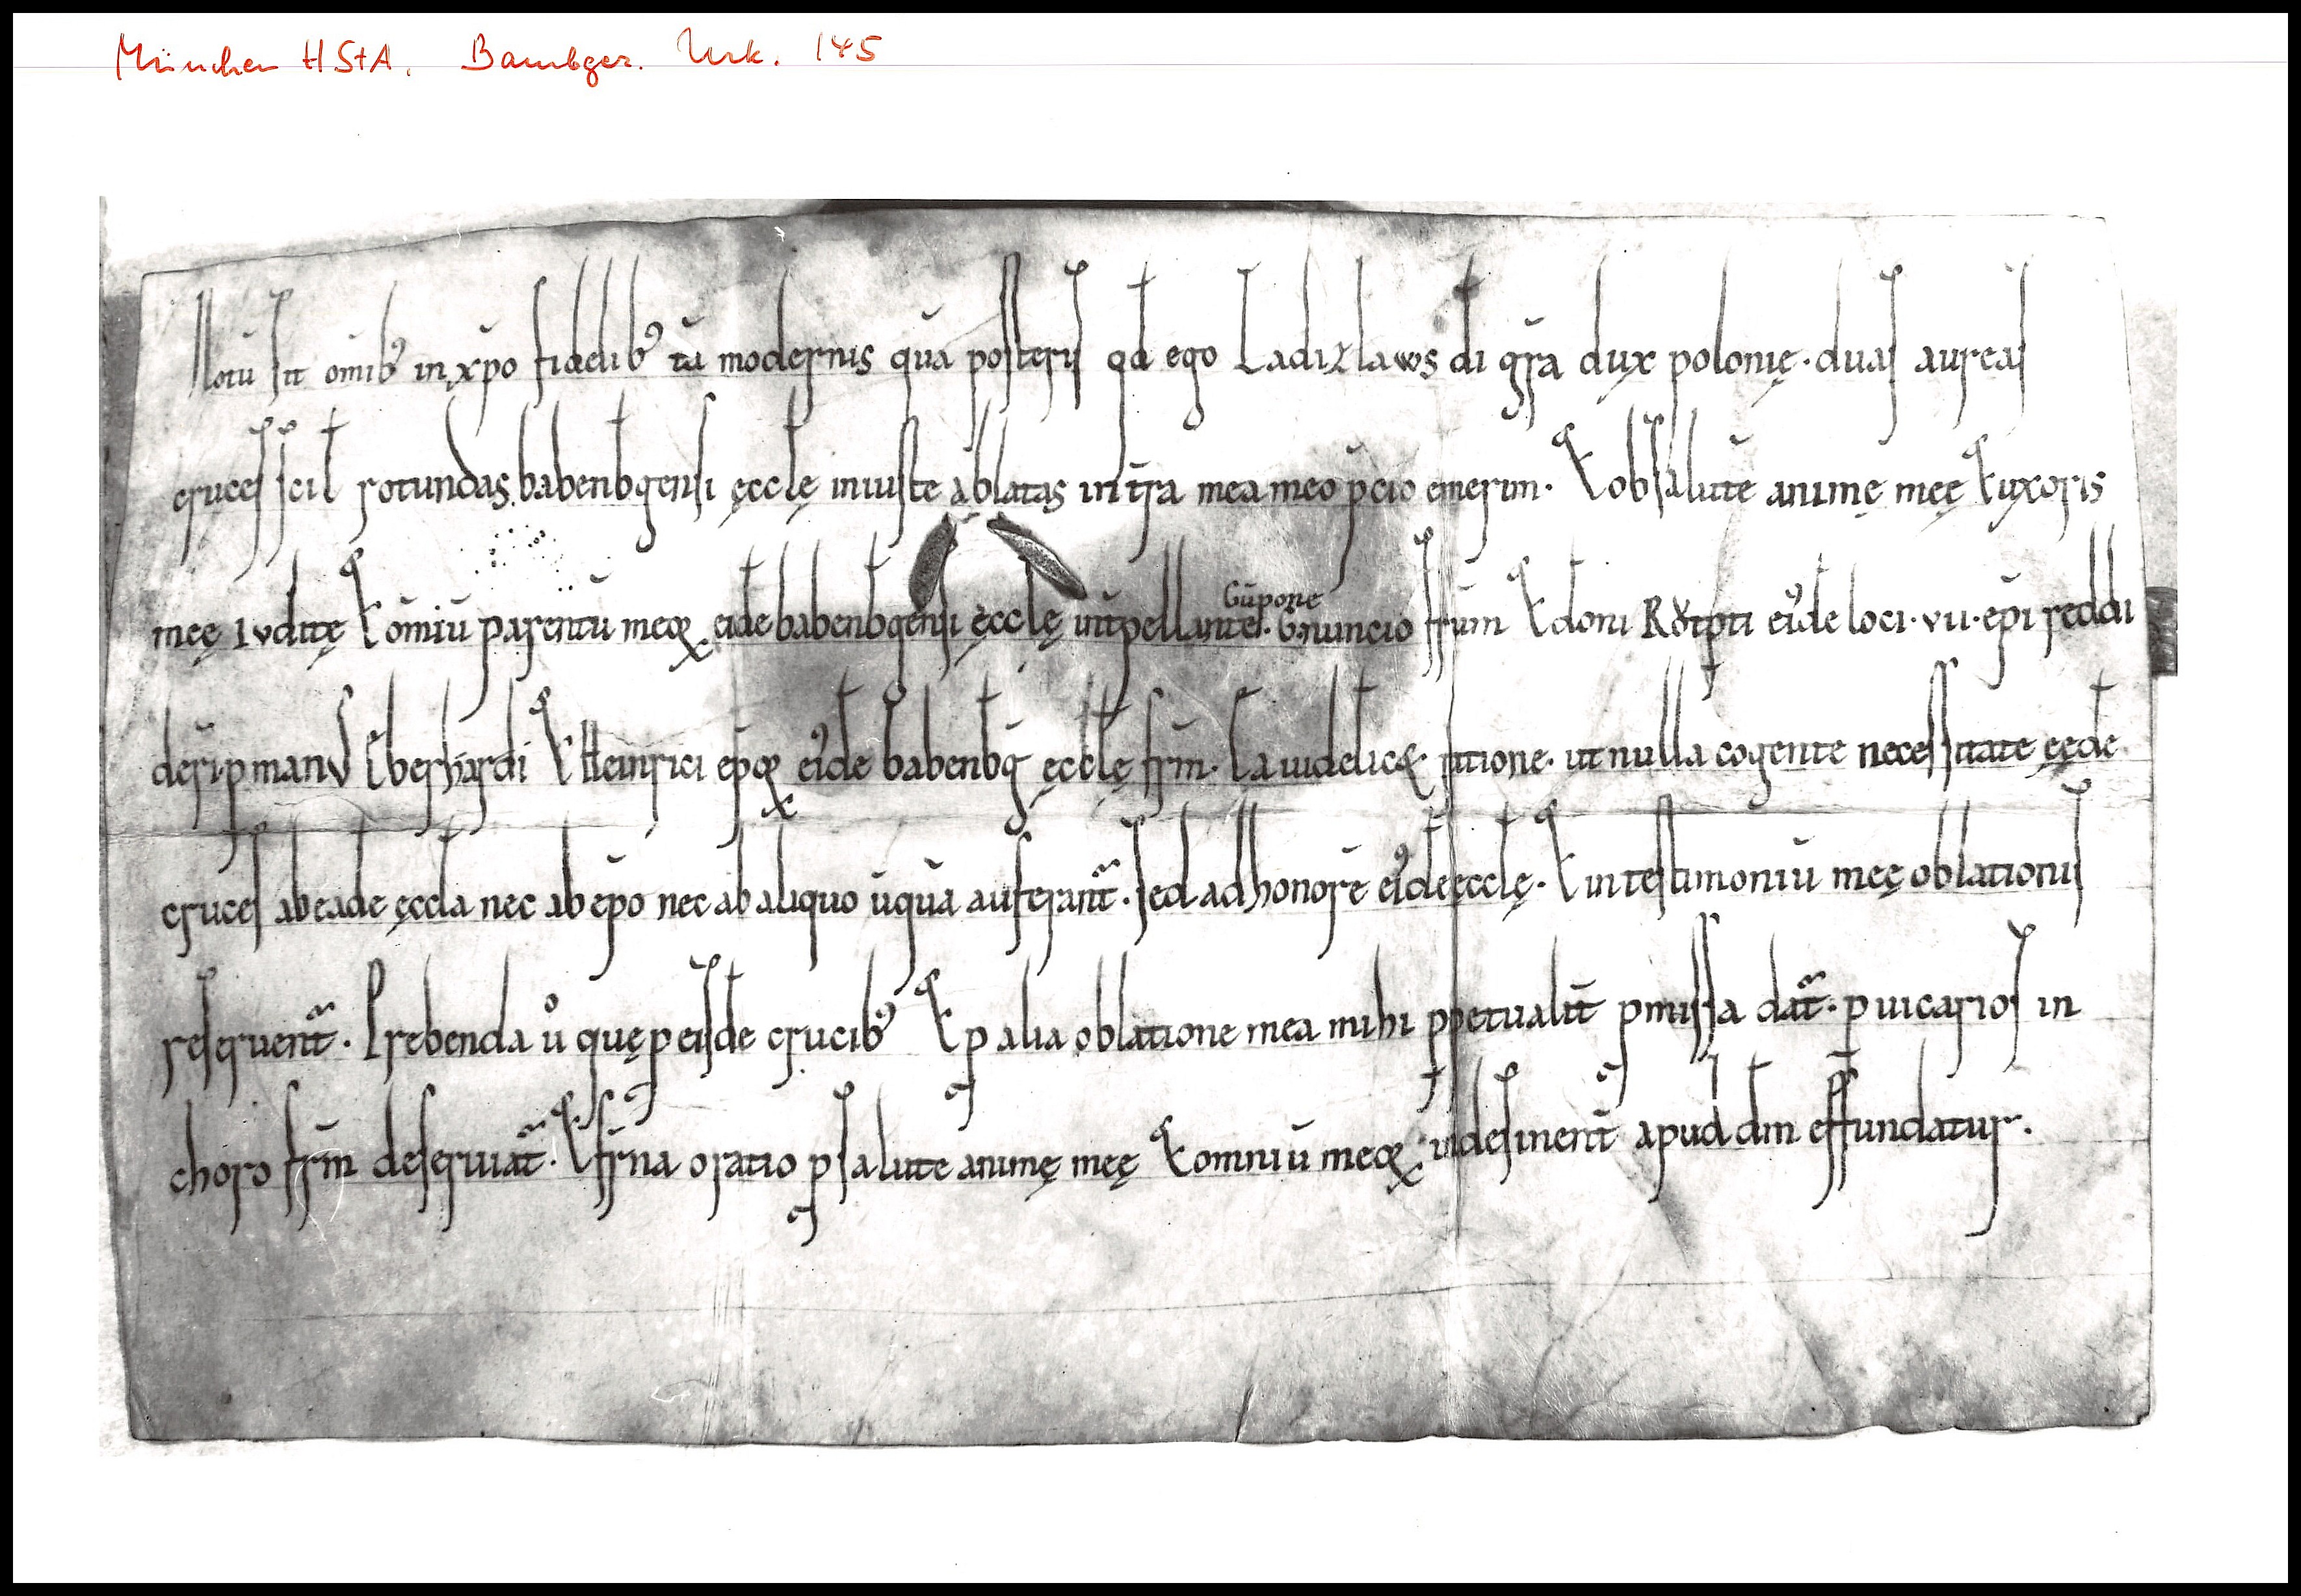 München HStA. Bambger. Urk. 145
Notū sit om̄ib⁹ in xp̄o fidelib⁹ tā modernis quā posteris qđ ego Ladizlaws di gr̄a dux polonię · duas aureas
cruces scil rotundas babenbgensi ęcclę iniuste ablatas in tr̄a mea meo p̄cio emerim · & ob salutē animę meę & uxoris
meę Ivditę & om̄iū parentū meoꝝ eidē babenbgensi ęcclę int̄pellante · G. nuncio frūm & doni Rȣtpti ei⁹dē loci · vii · ep̄i reddi
Gūpone
deri p man⁹ Eberhardi & Heinrici ep̄oꝝ ei⁹dē babenbg ęcclę frm̄ · Ea uidelicꝫ ratione · ut nulla cogente necessitate ęędē
cruces ab eadē ęccla nec ab ep̄o nec ab aliquo ūquā auferant̄ · sed ad honorē ei⁹dē ęcclę · & in testimoniū meę oblationis
reseruent̄ · Prebenda ů quę p eisdē crucib⁹ & p alia oblatione mea mihi ppetualit̄ pmissa dat̄ · p uicarios in
choro frm̄ deseruiat̄ · & frn̄a oratio p salute animę meę & omniū meoꝝ indesinent̄ apud dm̄ effundatur.